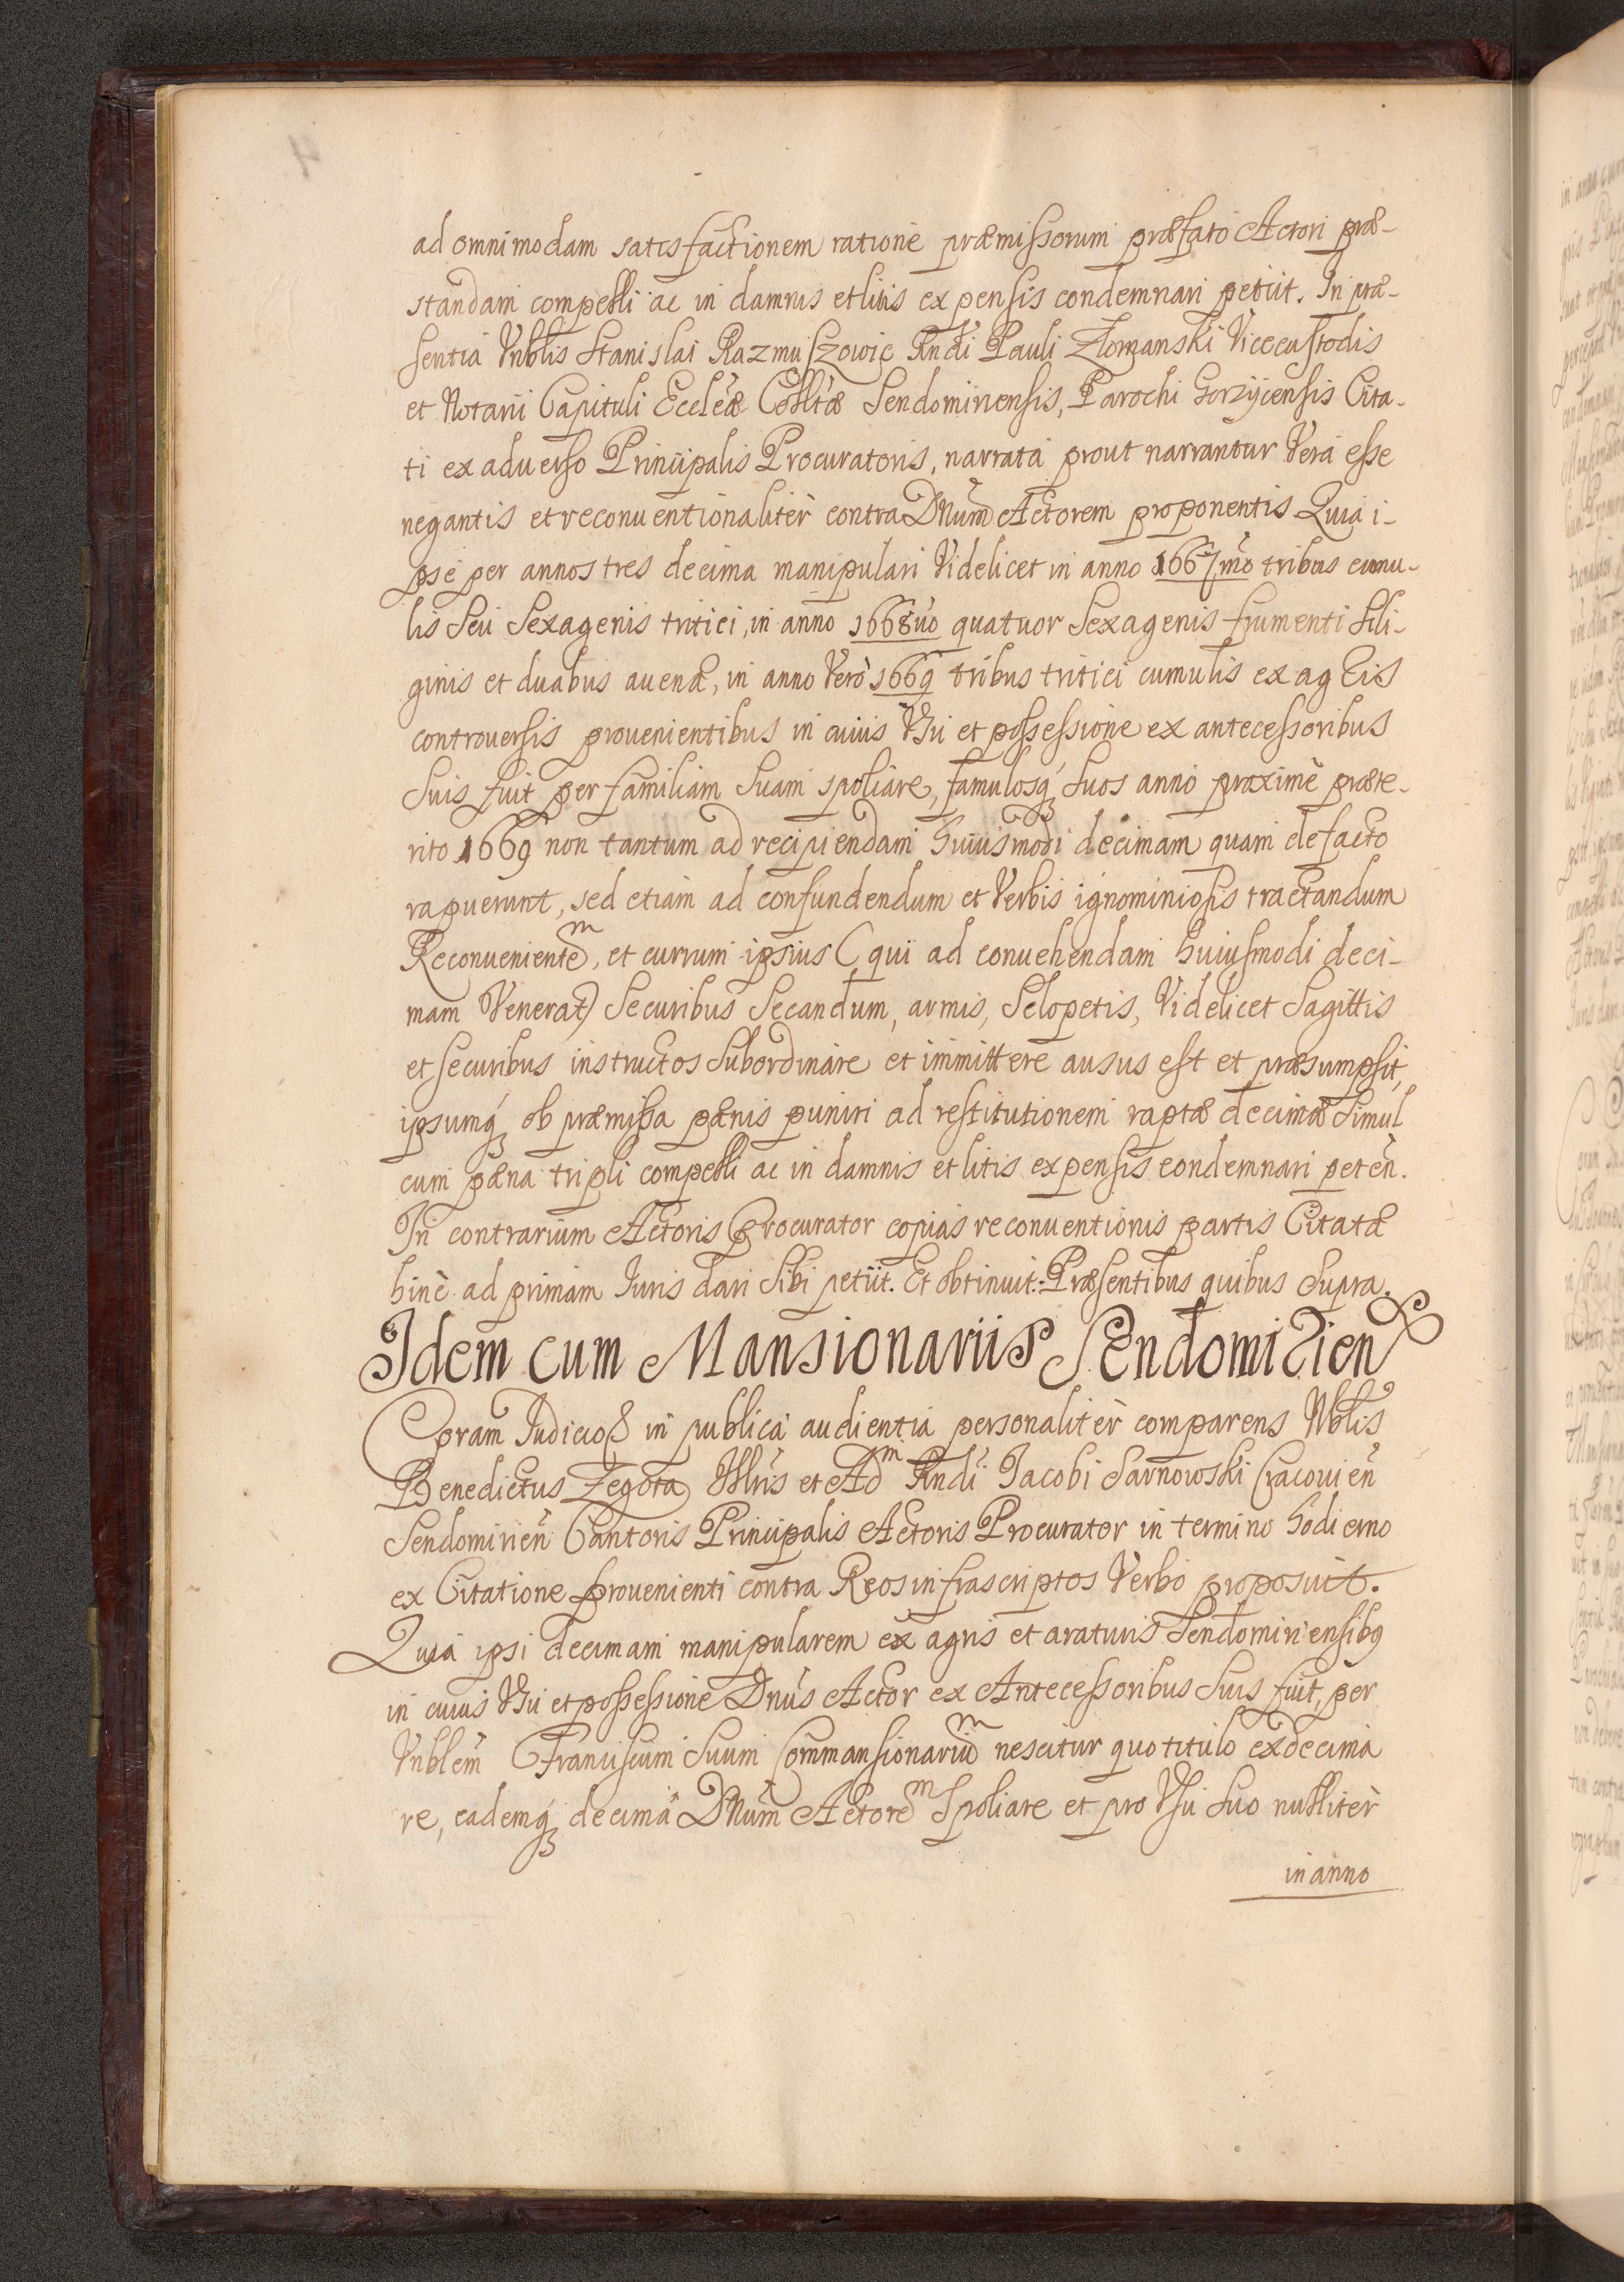 ad omnimodam satisfactionem ratione præmissorum præfato Actori præ-
standam compelli ac in damnis et litis expensis condemnari petiit. In præ-
sentia Vnblis Stanislai Razmuszowic Rndi Pauli Złomanski Vicecustodis
et Notarii Capituli Ecclēæ Colltæ Sendomiriensis, Parochi Gorzycensis Cita-
ti ex aduerso Principalis Procuratoris, narrata prout narrantur Vera esse
negantis et reconuentionaliter contra Dnum Actorem proponentis Quia i-
pse per annos tres decima manipulari Videlicet in anno 1667mo tribus cumu-
lis Seu Sexagenis tritici, in anno 1668uo quatuor Sexagenis frumenti Sili-
ginis et duabus auenæ, in anno Vero 1669 tribus tritici cumulis ex agris
controuersis prouenientibus in cuius Vsu et possessione ex antecessoribus
Suis fuit per familiam Suam spoliare, famulosq Suos anno proxime præte-
rito 1669 non tantum ad recipiendam huiusmodi decimam quam de facto
rapuerunt, sed etiam ad confundendum et Verbis ignominiosis tractandum
Reconuenientem, et currum ipsius (qui ad conuehendam huiusmodi deci-
mam Venerat) Securibus Secandum, armis, Sclopetis, Videlicet Sagittis
et securibus instructos Subordinare et immittere ausus est et præsumpsit,
ipsumq ob præmissa pænis puniri ad restitutionem raptæ decimæ Simul
cum pæna tripli compelli ac in damnis et litis expensis condemnari peten.
In contrarium Actoris Procurator copias reconuentionis partis Citatæ
hinc ad primam Iuris dari Sibi petiit. Et obtinuit. Præsentibus quibus Supra.
Idem cum Mansionariis Sendomirien
Coram Iudicio in publica audientia personaliter comparens Nblis
Benedictus Zegota Illris et Adm Rndi Iacobi Sarnowski Cracouien
Sendomirien Cantoris Principalis Actoris Procurator in termino hodierno
ex Citatione prouenienti contra Reos infrascriptos Verbo proposuit.
Quia ipsi decimam manipularem ex agris et araturis Sendomiriensibq
in cuius Vsu et possessione Dnus Actor ex Antecessoribus Suis fuit, per
Vnblem Franciscum Suum Commansionarium nescitur quo titulo exdecima
re, eademq decima Dnum Actorem Spoliare et pro Vsu Suo nulliter
in anno